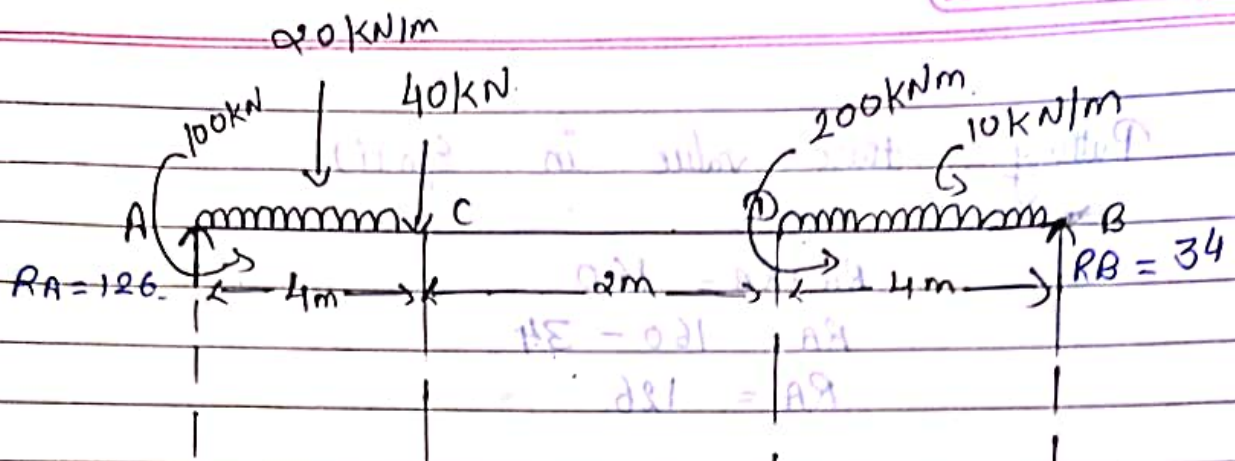 20KN/m
100KN 40KN. 200KNm. 10KN/m
A C D B
RA=126. 4m 2m 4m RB = 34